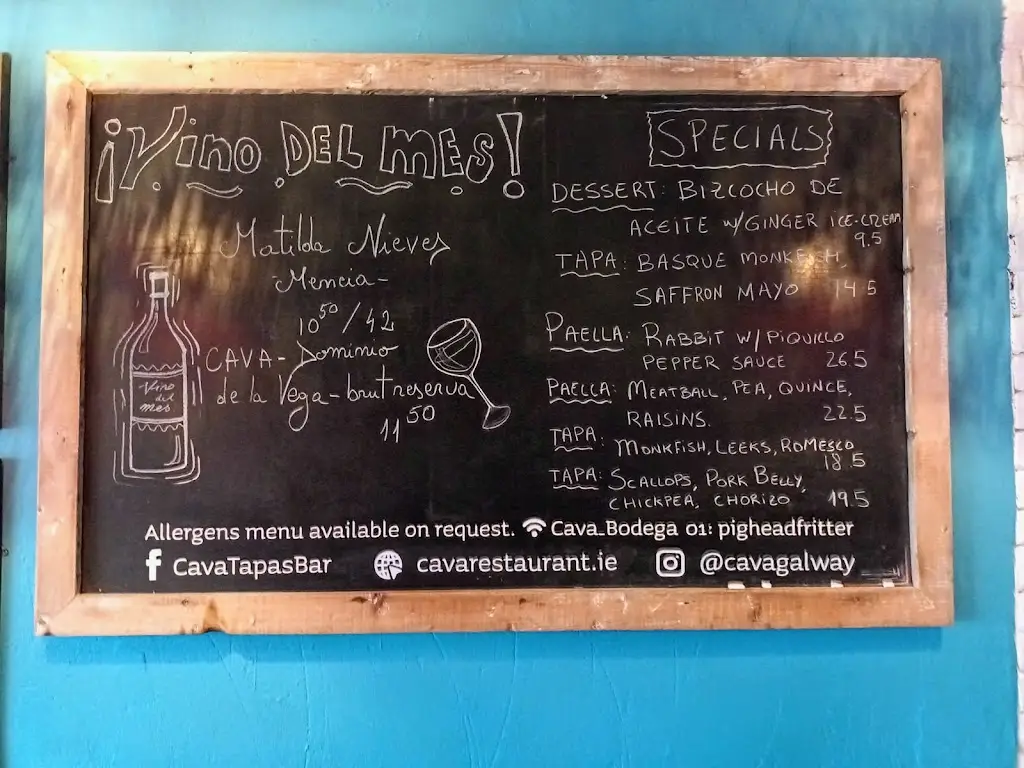 ¡Vino DEL MES!
Matilda Nieves
-Mencia-
10⁵⁰/42
CAVA- Dominio
de la Vega-brut reserva
11⁵⁰
Vino
del
mes
SPECIALS
DESSERT: BIZCOCHO DE
ACEITE W/GINGER ICE-CREAM
9.5
TAPA: BASQUE MONKFISH,
SAFFRON MAYO 14.5
PAELLA: RABBIT W/ PIQUILLO
PEPPER SAUCE 26.5
PAELLA: MEATBALL, PEA, QUINCE,
RAISINS. 22.5
TAPA: MONKFISH, LEEKS, ROMESCO
18.5
TAPA: SCALLOPS, PORK BELLY,
CHICKPEA, CHORIZO 19.5
Allergens menu available on request. Cava_Bodega 01: pigheadfritter
CavaTapasBar cavarestaurant.ie @cavagalway